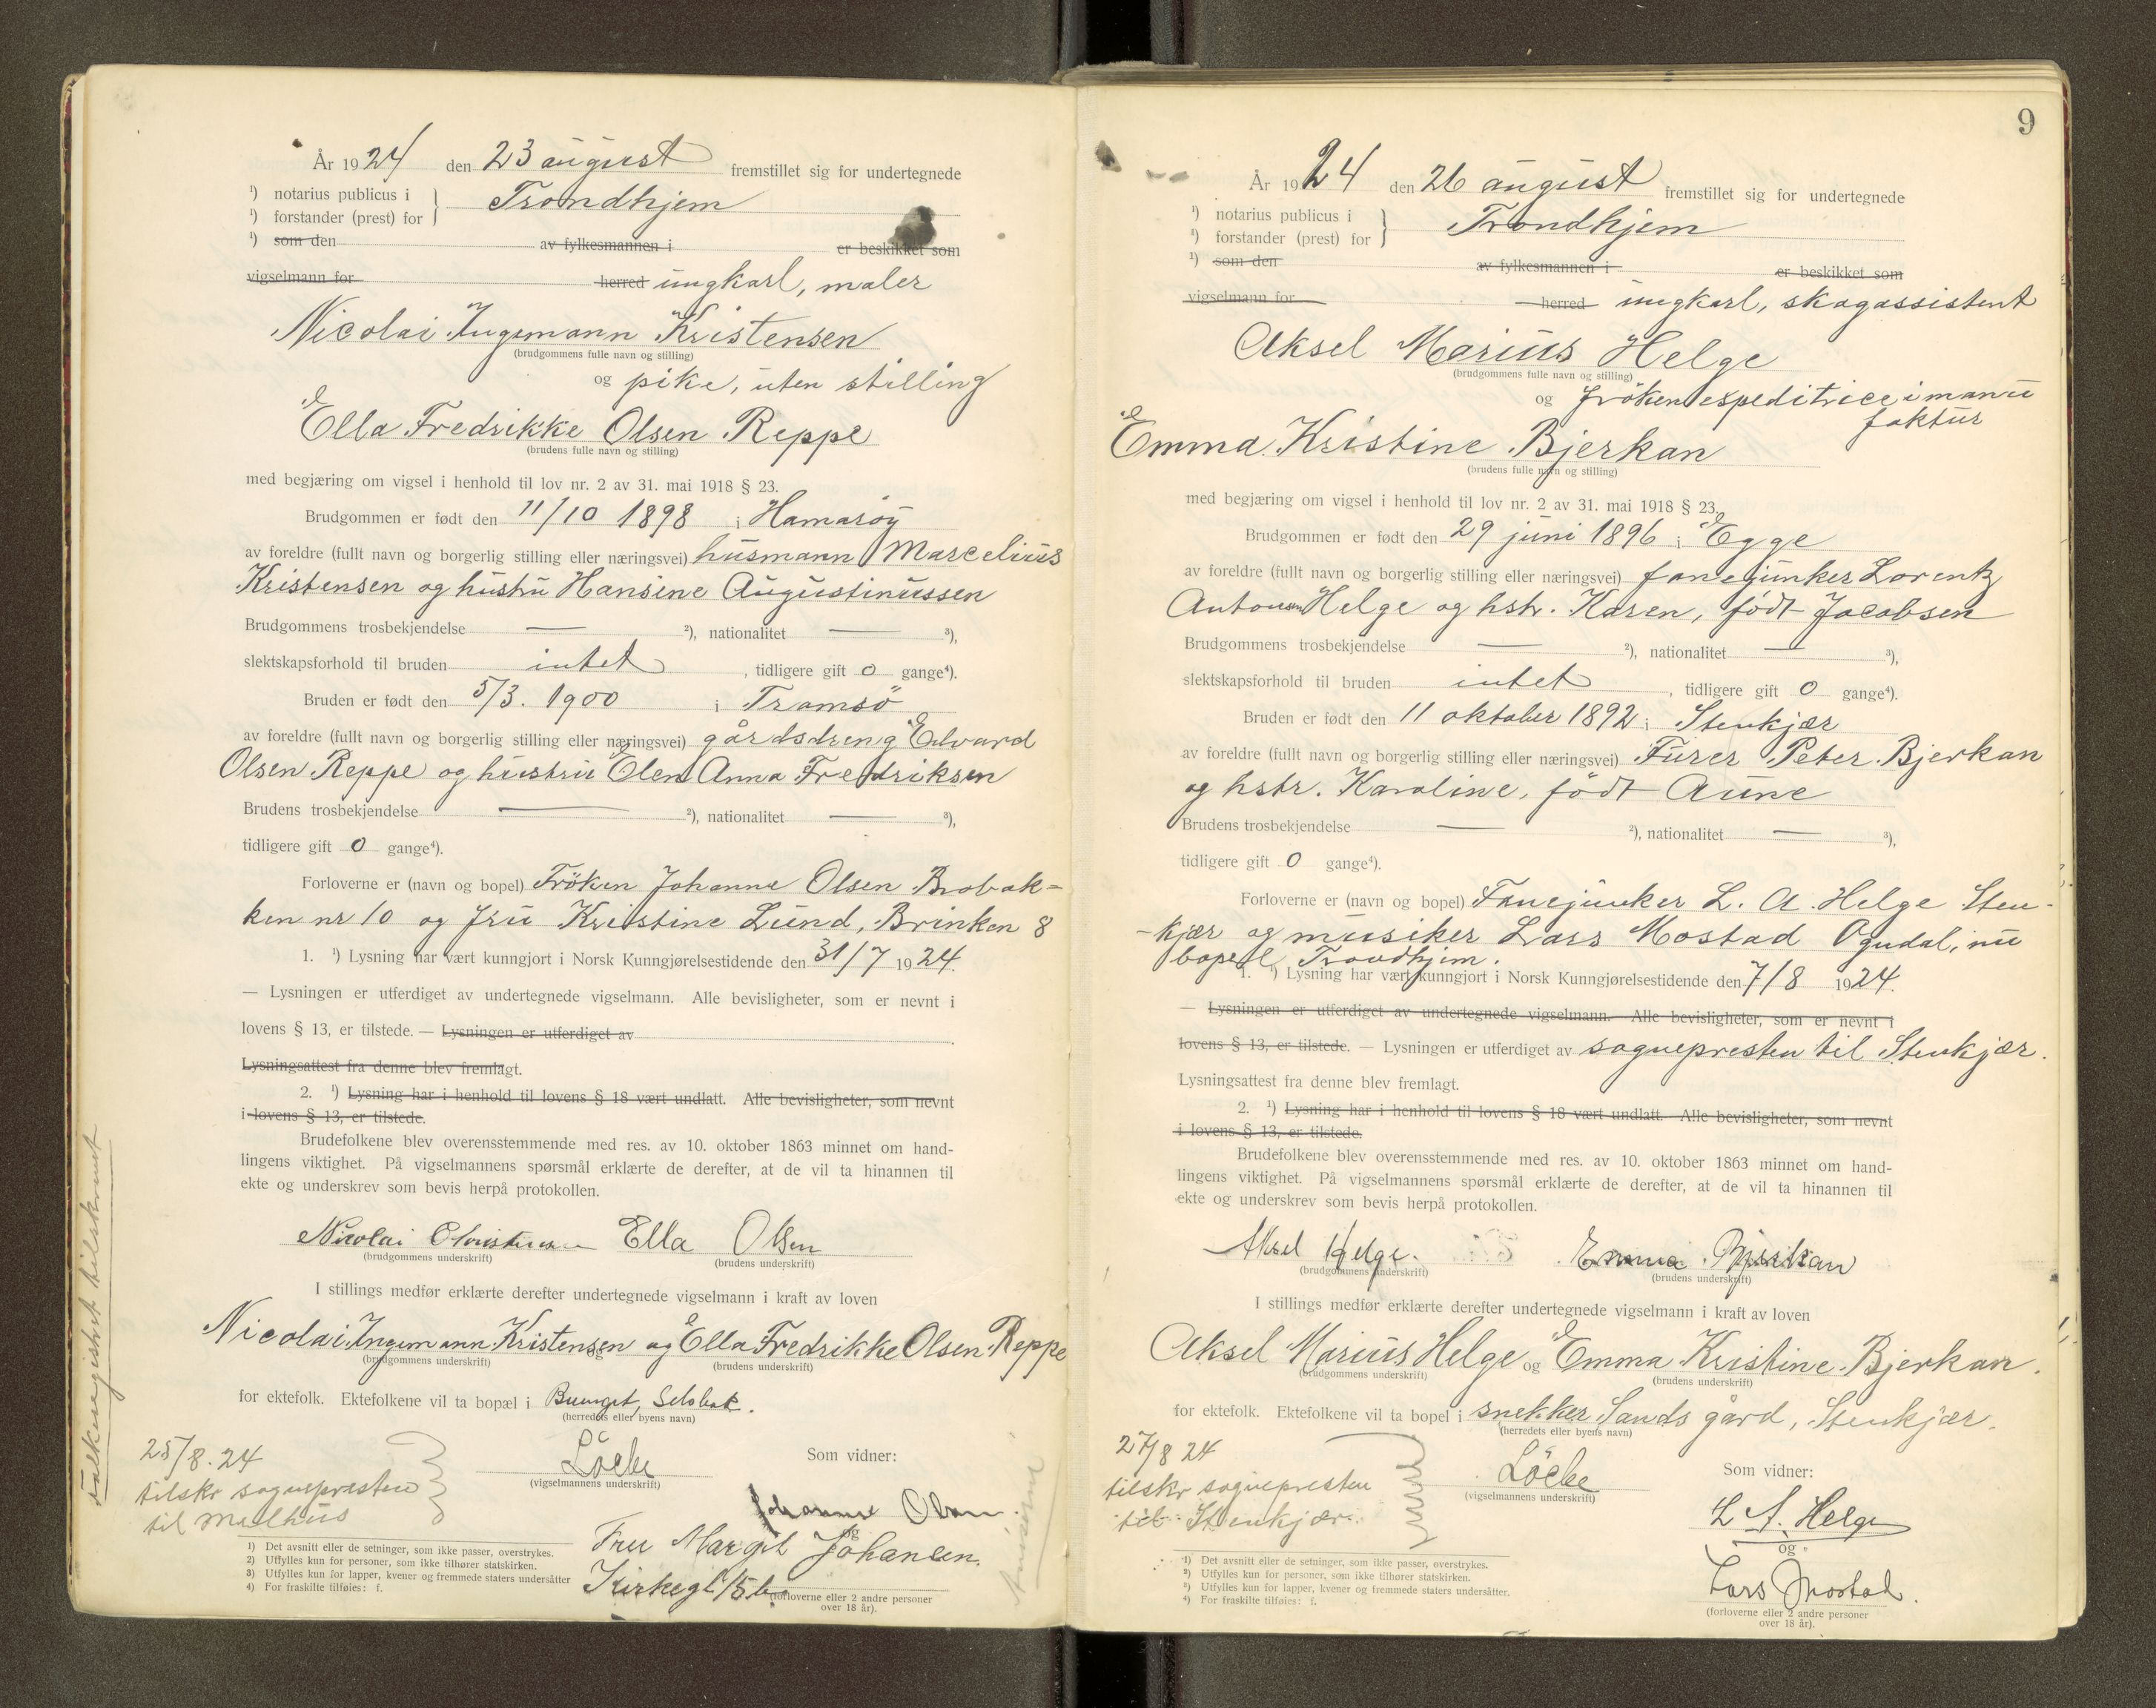 År 1924 den 23 august fremstillet sig for undertegnede
¹) notarius publicus i
¹) forstander (prest) for } Trondhjem
¹) som den av fylkesmannen i er beskikket som
vigselmann for herred ungkarl, maler
Nicolai Ingemann Kristensen
(brudgommens fulle navn og stilling)
og pike, uten stilling
Ella Fredrikke Olsen Reppe
(brudens fulle navn og stilling)
med begjæring om vigsel i henhold til lov nr. 2 av 31. mai 1918 § 23.
Brudgommen er født den 11/10 1898 i Hamarøy
av foreldre (fullt navn og borgerlig stilling eller næringsvei) husmann Marcelius
Kristensen og hustru Hansine Augustinussen
Brudgommens trosbekjendelse — ²), nationalitet — ³),
slektskapsforhold til bruden intet, tidligere gift 0 gange⁴).
Bruden er født den 5/3. 1900 i Tromsö
av foreldre (fullt navn og borgerlig stilling eller næringsvei) gårdsdreng Edvard
Olsen Reppe og hustru Elen Anna Fredriksen
Brudens trosbekjendelse — ²), nationalitet — ³),
tidligere gift 0 gange⁴).
Forloverne er (navn og bopel) Fröken Johanne Olsen Brobak-
ken nr 10 og fru Kristine Lund, Brinken 8
1. ¹) Lysning har vært kunngjort i Norsk Kunngjørelsestidende den 31/7 1924.
— Lysningen er utferdiget av undertegnede vigselmann. Alle bevisligheter, som er nevnt i
lovens § 13, er tilstede. — Lysningen er utferdiget av .
Lysningsattest fra denne blev fremlagt.
2. ¹) Lysning har i henhold til lovens § 18 vært undlatt. Alle bevisligheter, som nevnt
i lovens § 13, er tilstede.
Brudefolkene blev overensstemmende med res. av 10. oktober 1863 minnet om hand-
lingens viktighet. På vigselmannens spørsmål erklærte de derefter, at de vil ta hinannen til
ekte og underskrev som bevis herpå protokollen.
Nicolai Christensen Ella Olsen
(brudgommens underskrift) (brudens underskrift)
I stillings medfør erklærte derefter undertegnede vigselmann i kraft av loven
Nicolai Ingemann Kristensen og Ella Fredrikke Olsen Reppe
(brudgommens underskrift) (brudens underskrift)
for ektefolk. Ektefolkene vil ta bopæl i Selsbak.
(herredets eller byens navn)
Löcke Som vidner:
(vigselmannens underskrift)
25/8. 24
tilskr sognepresten
til Melhus
Johanne Olsen.
og
Fru Margit Johansen
Kirkegt 15 b.
(forloverne eller 2 andre personer
over 18 år).
¹) Det avsnitt eller de setninger, som ikke passer, overstrykes.
²) Utfylles kun for personer, som ikke tilhører statskirken.
³) Utfylles kun for lapper, kvener og fremmede staters undersåtter
⁴) For fraskilte tilføies: f.
Folkeregistret tilskrevet
9
År 1924 den 26 august fremstillet sig for undertegnede
¹) notarius publicus i
¹) forstander (prest) for } Trondhjem
¹) som den av fylkesmannen i er beskikket som
vigselmann for herred ungkarl, skogassistent
Aksel Marius Helge
(brudgommens fulle navn og stilling)
og fröken espeditrice i manu
faktur
Emma Kristine Bjerkan
(brudens fulle navn og stilling)
med begjæring om vigsel i henhold til lov nr. 2 av 31. mai 1918 § 23.
Brudgommen er født den 29 juni 1896 i Egge
av foreldre (fullt navn og borgerlig stilling eller næringsvei) fanejunker Lorentz
Antonsen Helge og hstr. Karen, født Jacobsen
Brudgommens trosbekjendelse — ²), nationalitet — ³),
slektskapsforhold til bruden intet, tidligere gift 0 gange⁴).
Bruden er født den 11 oktober 1892 i Stenkjær
av foreldre (fullt navn og borgerlig stilling eller næringsvei) Furer Peter Bjerkan
og hstr. Karoline, født Aune
Brudens trosbekjendelse — ²), nationalitet — ³),
tidligere gift 0 gange⁴).
Forloverne er (navn og bopel) Fanejunker L. A. Helge Sten-
-kjær og musiker Lars Mostad Ogndal, nu
bopel Trondhjem.
1. ¹) Lysning har vært kunngjort i Norsk Kunngjørelsestidende den 7/8 1924.
— Lysningen er utferdiget av undertegnede vigselmann. Alle bevisligheter, som er nevnt i
lovens § 13, er tilstede. — Lysningen er utferdiget av sognepresten til Stenkjær.
Lysningsattest fra denne blev fremlagt.
2. ¹) Lysning har i henhold til lovens § 18 vært undlatt. Alle bevisligheter, som nevnt
i lovens § 13, er tilstede.
Brudefolkene blev overensstemmende med res. av 10. oktober 1863 minnet om hand-
lingens viktighet. På vigselmannens spørsmål erklærte de derefter, at de vil ta hinannen til
ekte og underskrev som bevis herpå protokollen.
Aksel Helge. Emma Bjerkan
(brudgommens underskrift) (brudens underskrift)
I stillings medfør erklærte derefter undertegnede vigselmann i kraft av loven
Aksel Marius Helge og Emma Kristine Bjerkan.
(brudgommens underskrift) (brudens underskrift)
for ektefolk. Ektefolkene vil ta bopel i snekker Sands gård, Stenkjær.
(herredets eller byens navn)
Löcke Som vidner:
(vigselmannens underskrift)
27/8 24
tilskr sognepresten
til Stenkjær.
L A. Helge
og
Lars Mostad.
(forloverne eller 2 andre personer
over 18 år).
¹) Det avsnitt eller de setninger, som ikke passer, overstrykes.
²) Utfylles kun for personer, som ikke tilhører statskirken.
³) Utfylles kun for lapper, kvener og fremmede staters undersåtter.
⁴) For fraskilte tilføies: f.